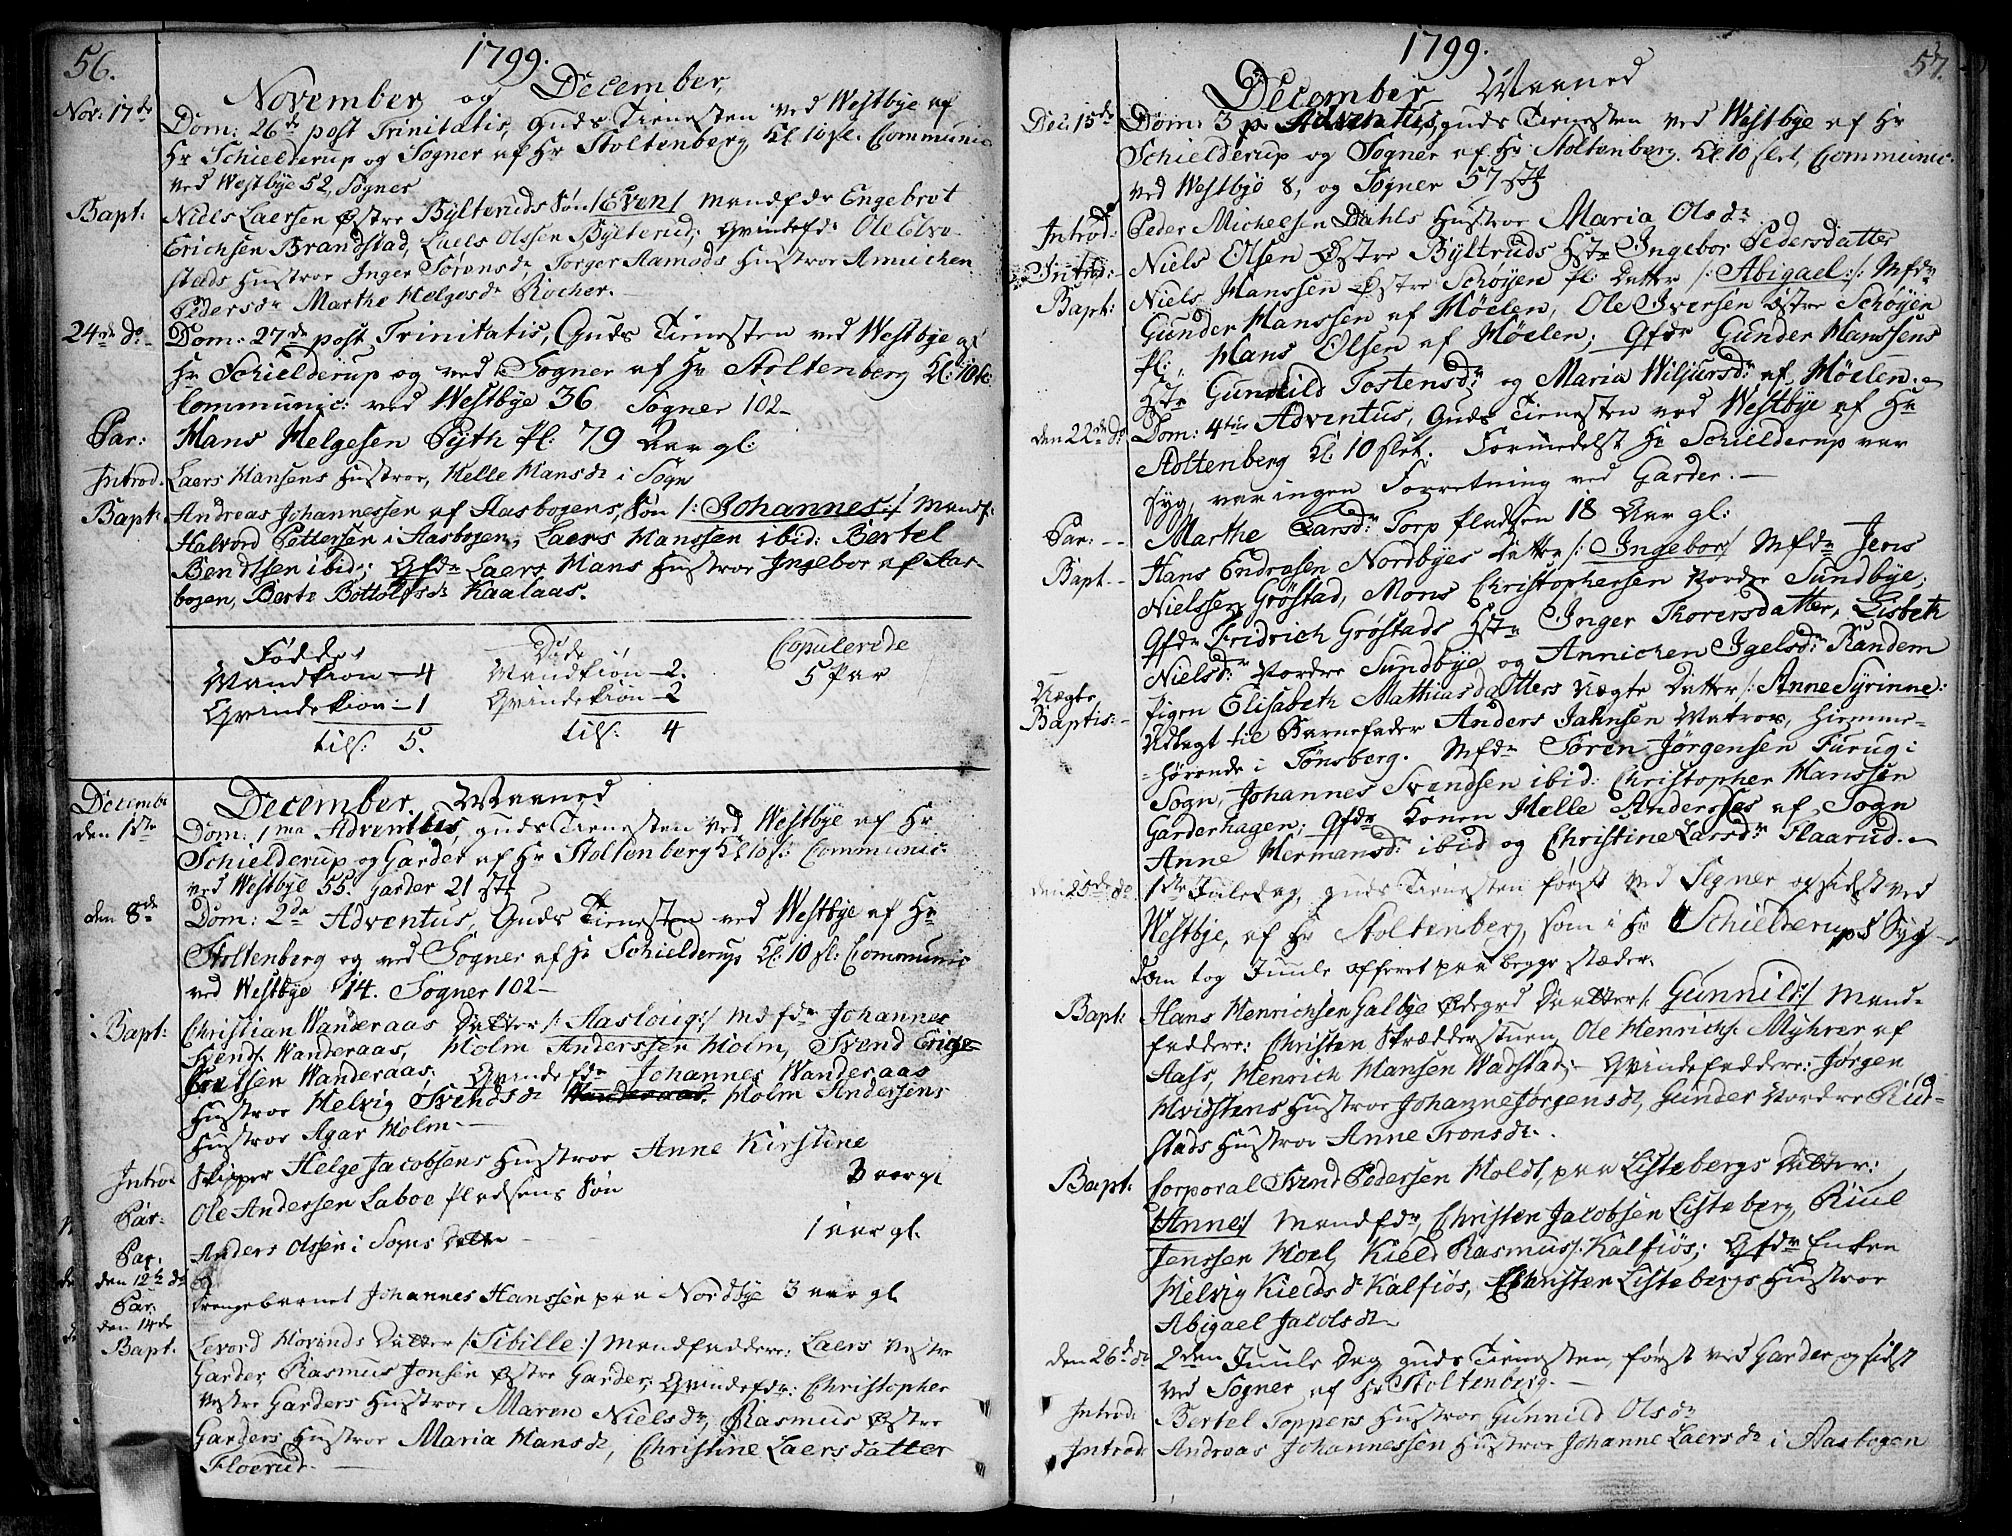 56.
1799.
November og December,
Nov: 17de Dom: 26de post Trinitatis, Guds Tienesten ved Westbye af
Hr Schielderup og Sogner af Hr Stoltenberg Kl 10 sl. Communic
ved Westbye 52, Sogner
Bapt: Niels Laersen Østre Bylteruds Søn /Even/ Mandfdr Engebrot
Erichsen Brandstad, Laers Olssen Bylterud; Qvindefd: Ole Elve-
stads Hustroe Inger Sørensdr Torger Aamods Hustroe Annichen
Pedersdr Marthe Helgesdr Kocher.-
24de do- Dom: 27de post Trinitatis, Guds Tienesten ved Westbye af
Hr Schielderup og ved Sogner af Hr Stoltenberg Kl: 10 sl:
Communic: ved Westbye 36 Sogner 102-
Par: Hans Helgesen Pyth pl: 79 Aar gl:
Introd. Laers Hansens Hustroe, Helle Hansdr i Sogn
Bapt: Andreas Johannessen af Aasbogens, Søn /: Johannes:/ Mandf:
Halvord Pettersen i Aasbogen, Laers Hanssen ibid: Bertel
Bendtsen ibid; Qfdr Laers Hans Hustroe Ingebor af Aas-
bogen, Berte Bottolfsdr Kaalaas.
Fødde Døde Copulerede
Mandkiøn - 4 Mandkiøn - 2. 5 Par
Qvindekiøn - 1 Qvindekiøn - 2
tils: 5. tils: 4
December Maaned
Decembr
den 1ste Dom: 1ma Adventus, guds Tienesten ved Westbye af Hr
Schielderup og Garder af Hr Stoltenberg Kl 10 sl: Communic:
ved Westbye 55. Garder 21 stk
den 8de Dom: 2da Adventus, Guds Tienesten ved Westbye af Hr
Stoltenberg og ved Sogner af Hr Schielderup Kl: 10 sl: Communic
ved Westbye 14. Sogner 102-
Bapt: Christian Wanderaas Datter /: Aasloug:/ Mdfdr Johannes
Svends. Wanderaas, Holm Anderssen Holm, Svend Enge-
bretsen Wanderaas; Qvindefdr Johannes Wanderaas
Hustroe Helvig Svendsdr Holm Andersens
Hustroe Agar Holm.-
Introd Skipper Helge Jacobsens Hustroe Anne Kirstine
Par: Ole Andersen Laboe pladsens Søn 3 aar gl
Par: Anders Olssen i Sogns Datter 1 aar gl.
den 12te do
Par: Drengebarnet Johannes Hanssen paa Nordbye 3 aar gl
den 14de
Bapt. Levord Hovinds Datter /: Sibille:/ Mandfaddere: Laers Vestre
Garder, Rasmus Jonsen Østre Garder; Qvindefdr: Christopher
Vestre Garders Hustroe Maren Nielsdr, Rasmus Østre
Garders Hustroe Maria Hansdr, Christine Laersdatter
Floerud.-
57.
1799.
December Maaned
Dec: 15de Dom: 3 p Adventus, guds Tienesten ved Westbye af Hr
Schielderup og Sogner af Hr Stoltenberg. Kl. 10 slet, Communic.
ved Westbye 8, og Sogner 57 stk
Introd: Peder Michelsen Dahls Hustroe Maria Olsdr
Introd: Niels Olsen Østre Byltruds Hstr Ingebor Pedersdatter
Bapt: Niels Hanssen Østre Schøyen pl: Datter /: Abigael:/: Mfdr
Gunder Hanssen af Møelen, Ole Iversen Østre Schøyen
pl, Hans Olsen af Møelen; Qfdr Gunder Hanssens
Hstr Gunnild Tostensdr og Maria Wiljursdr af Møelen.-
den 22de do Dom: 4tus Adventus, Guds Tienesten ved Westbye af Hr
Stoltenberg Kl. 10 slet. Formedelst Hr Schielderup var
syg, var ingen Forretning ved Garder.-
Par: - Marthe Larsdr Torp pladsen 18 Aar gl:
Bapt.- Hans Endresen Nordbyes Datter /: Ingebor/ Mfdr Jens
Nielssen Grøstad, Mons Christophersen Nordre Sundbye;
Qfdr Fridrich Grøstads Hstr Inger Thorersdatter, Lisbeth
Nielsdr Nordre Sundbye og Annichen Igelsdr Randem
Uægte
Baptis:- Pigen Elisabeth Mathiasdatters uægte Datter /: Anne Syrinne:
Udlagt til Barnefader Anders Jahnsen Matros, hiemme-
hørende i Tønsberg. Mfdr Søren Jørgensen Furug i
Sogn, Johannes Svendsen ibid: Christopher Hanssen
Garderhagen; Qfdr Konen Helle Anderses af Sogn
Anne Hermansdr ibid og Christine Larsdr Flaarud.-
den 25de do 1ste Juledag, guds Tienesten først ved Segner og sidst ved
Westbye, af Hr Stoltenberg, som i Hr Schielderups Syg-
dom tog Juule offeret paa begge stæder.
Bapt: Hans Henrichsen Galbye Ødegrd Datter /: Gunnild:/ Mand-
faddere: Christen Skrædderstuen, Ole Henrichs. Myhrer af
Aass, Henrich Hansen Wadstad;- Qvindefaddere: Jørgen
Hvidstens Hustroe Johanne Jørgensdr, Gunder Nordre Rud-
stads Hustroe Anne Tronsdr.
Bapt: Corporal Svend Pedersen Holdt, paa Listebergs Datter:
/Anne:/ Mandfdr, Christen Jacobsen Listeberg, Riul
Jenssen Hoel, Kield Rasmus/. Kalfiøs; Qfdr Enken
Helvig Kieldsdr Kalfiøs, Christen Listebergs Hustroe
Abigael Jacobsdr
den 26de do 2den Juule Dag guds Tienesten, først ved Garder og sidst
ved Sogner af Hr Stoltenberg.-
Introd: Bertel Toppers Hustroe Gunnild Olsdr
Introd: Andreas Johannessen Hustroe Johanne Laersdr i Aasbogen